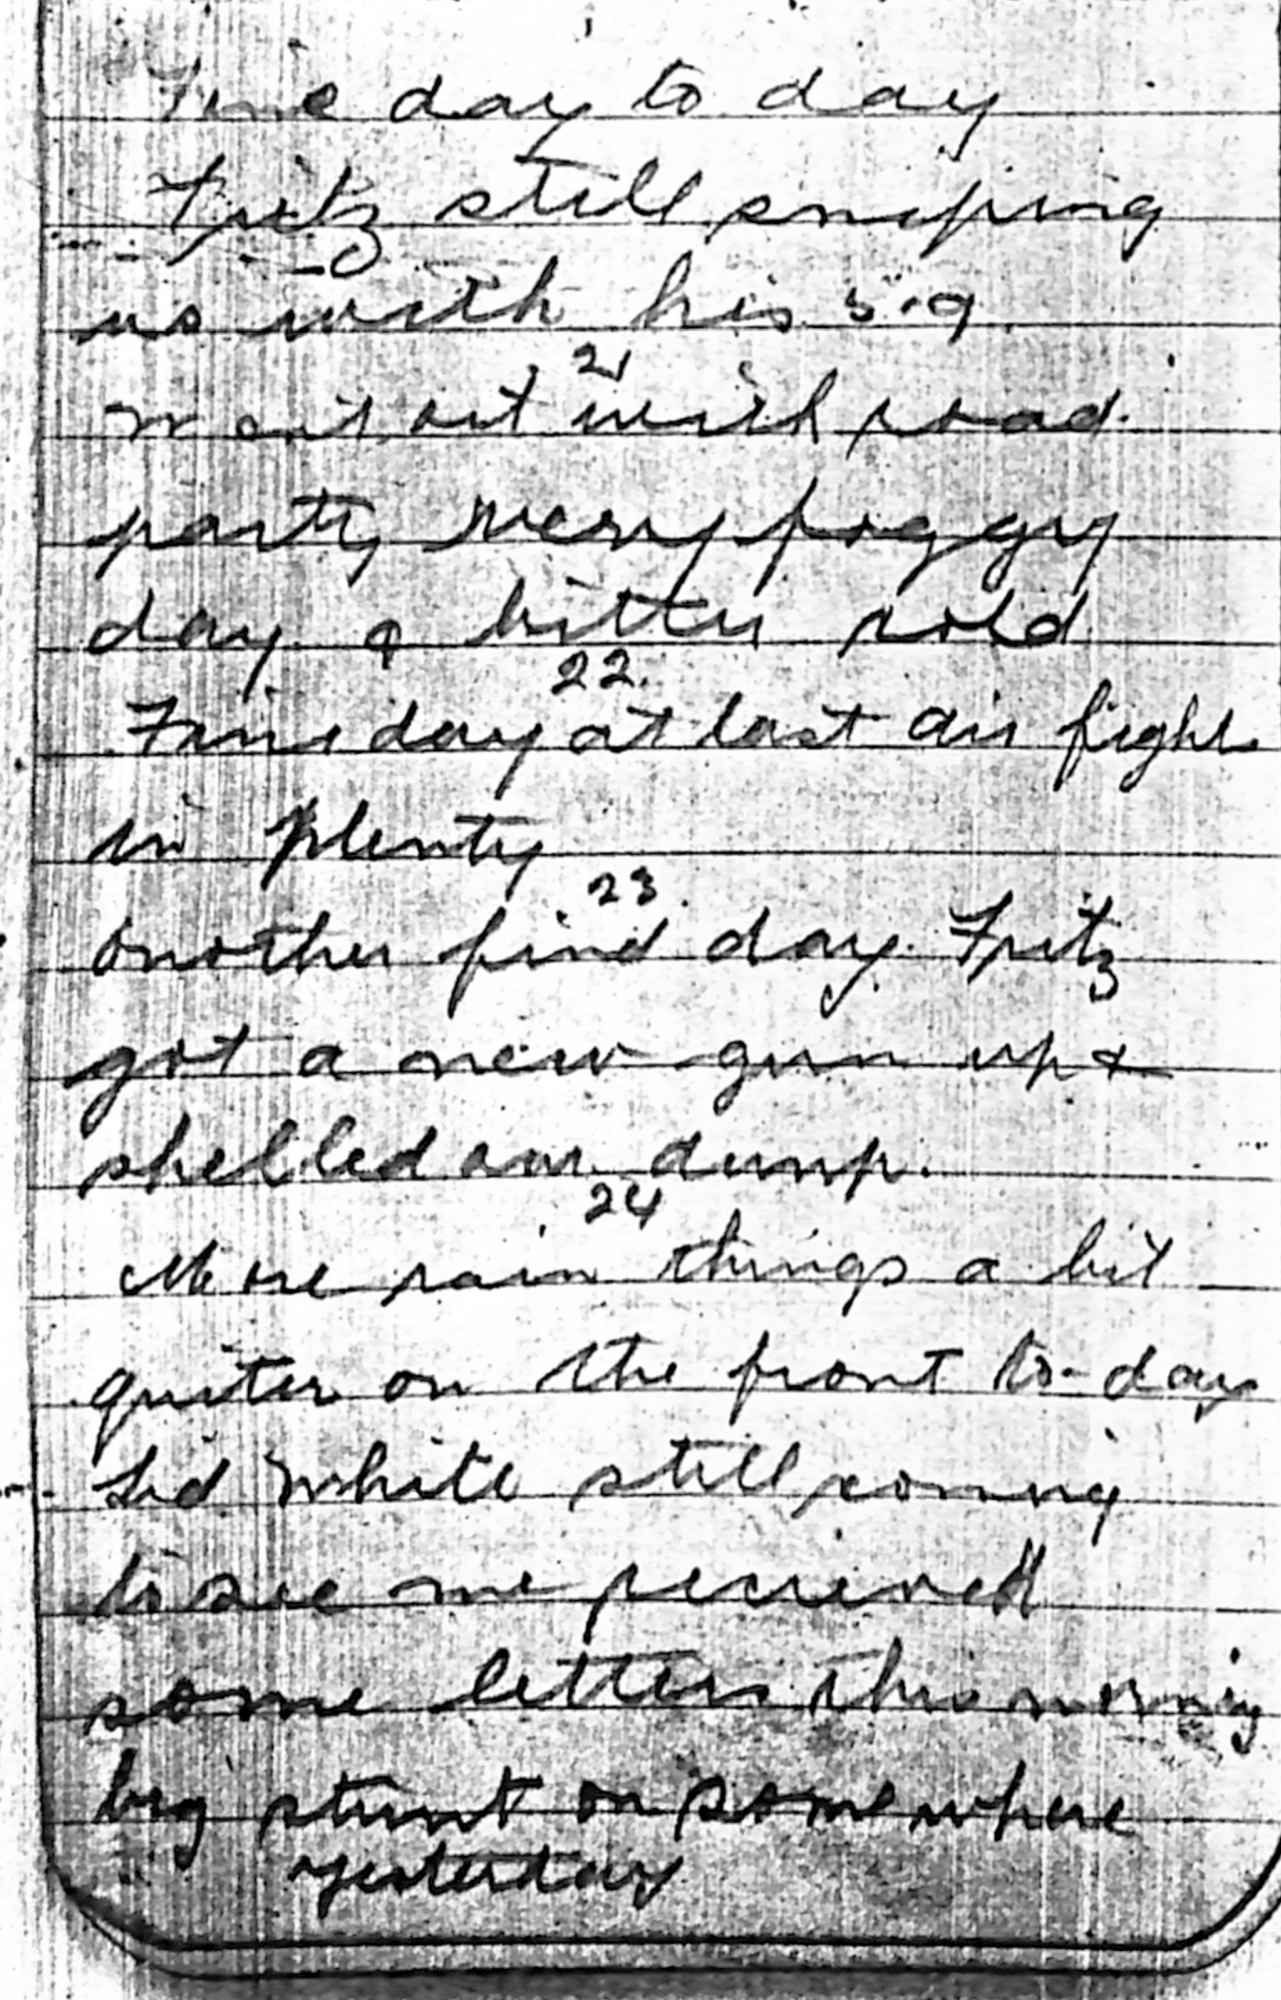 Fine day to day
Fritz still sniping
us with his 5.9
21
Went out with road
party very foggy
day & bitter cold
22.
Fine day at last air fights
in plenty
23.
another fine day. Fritz
got a new gun up &
shelled our dump.
24
More rain things a bit
quiter on the front to-day
Sid White still coming
to see me recieved
some letters this morning
big stunt on somewhere
yesterday